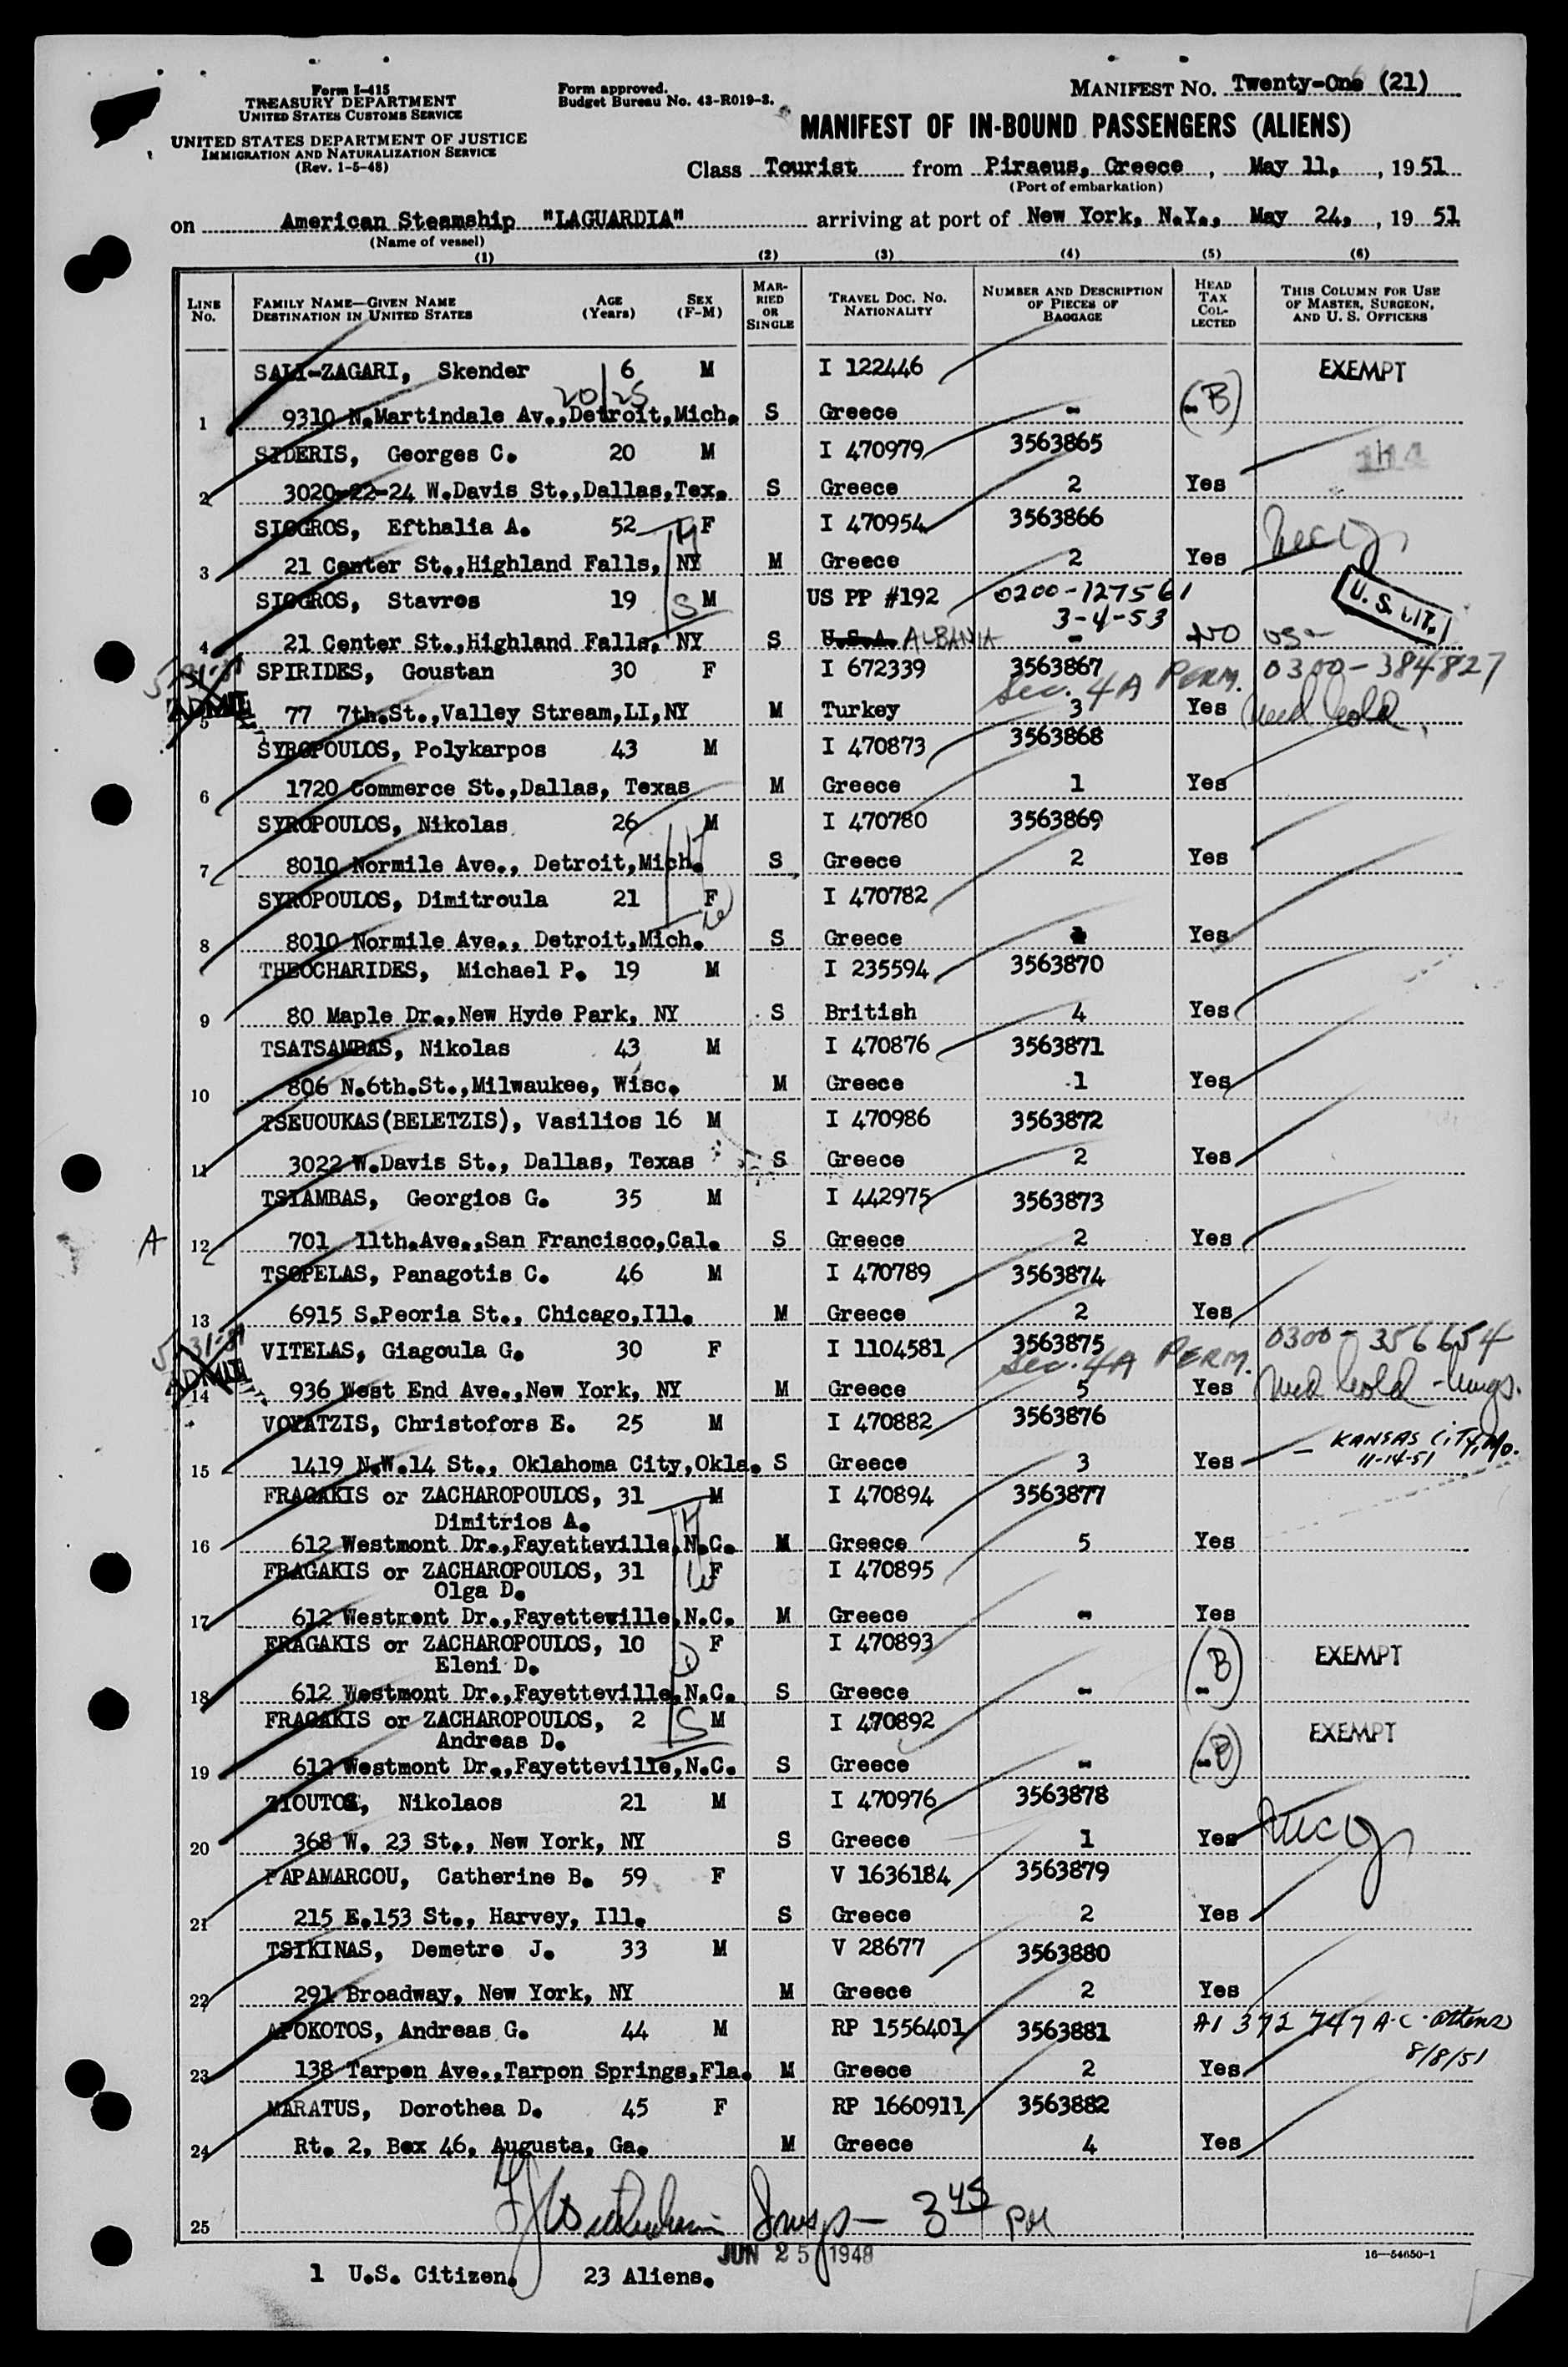 Form I-415
TREASURY DEPARTMENT
UNITED STATES CUSTOMS SERVICE
UNITED STATES DEPARTMENT OF JUSTICE
IMMIGRATION AND NATURALIZATION SERVICE
(Rev. 1-5-48)
Form approved.
Budget Bureau No. 43-R019-3.
MANIFEST NO. Twenty-One (21)
MANIFEST OF IN-BOUND PASSENGERS (ALIENS)
Class Tourist from Piraeus, Greece, May 11, , 1951
(Port of embarkation)
on American Steamship "LAGUARDIA" arriving at port of New York, N.Y., May 24, , 19 51
(Name of vessel)
(1) (2) (3) (4) (5) (6)
LINE No. FAMILY NAME—GIVEN NAME DESTINATION IN UNITED STATES AGE (Years) SEX (F-M) MARRIED OR SINGLE TRAVEL DOC. NO. NATIONALITY NUMBER AND DESCRIPTION OF PIECES OF BAGGAGE HEAD TAX COLLECTED THIS COLUMN FOR USE OF MASTER, SURGEON, AND U. S. OFFICERS
SALI-ZAGARI, Skender 6 M I 122446 EXEMPT
20/25
1 9310 N.Martindale Av.,Detroit,Mich. S Greece - - (B)
SIDERIS, Georges C. 20 M I 470979 3563865 114
2 3020-22-24 W.Davis St.,Dallas,Tex. S Greece 2 Yes
SIOGROS, Efthalia A. 52 F I 470954 3563866
3 21 Center St.,Highland Falls, NY M Greece 2 Yes
SIOGROS, Stavros 19 S M US PP #192 0200-127561 U. S. CIT.
3-4-53
4 21 Center St.,Highland Falls, NY S U.S.A. ALBANIA - NO US-
5-31-51 SPIRIDES, Goustan 30 F I 672339 3563867 0300-384827
Sec. 4A PERM.
ADMIT 5 77 7th.St.,Valley Stream,LI,NY M Turkey 3 Yes Med hold
SYROPOULOS, Polykarpos 43 M I 470873 3563868
6 1720 Commerce St.,Dallas, Texas M Greece 1 Yes
SYROPOULOS, Nikolas 26 M I 470780 3563869
H
7 8010 Normile Ave., Detroit,Mich. S Greece 2 Yes
SYROPOULOS, Dimitroula 21 F I 470782
W
8 8010 Normile Ave., Detroit,Mich. S Greece Yes
THEOCHARIDES, Michael P. 19 M I 235594 3563870
9 80 Maple Dr.,New Hyde Park, NY S British 4 Yes
TSATSAMBAS, Nikolas 43 M I 470876 3563871
10 806 N.6th.St.,Milwaukee, Wisc. M Greece 1 Yes
TSEUOUKAS(BELETZIS), Vasilios 16 M I 470986 3563872
11 3022 W.Davis St., Dallas, Texas S Greece 2 Yes
TSIAMBAS, Georgios G. 35 M I 442975 3563873
A 12 701 11th.Ave.,San Francisco,Cal. S Greece 2 Yes
TSOPELAS, Panagotis C. 46 M I 470789 3563874
13 6915 S.Peoria St., Chicago,Ill. M Greece 2 Yes
5-31-51 VITELAS, Giagoula G. 30 F I 1104581 3563875 0300-356654
Sec. 4A PERM.
ADMIT 14 936 West End Ave.,New York, NY M Greece 5 Yes Med hold - lungs.
VOYATZIS, Christofors E. 25 M I 470882 3563876
15 1419 N.W.14 St., Oklahoma City,Okla. S Greece 3 Yes - KANSAS CITY, MO.
11-14-51
FRAGAKIS or ZACHAROPOULOS, 31 M I 470894 3563877
Dimitrios A. H
16 612 Westmont Dr.,Fayetteville,N.C. M Greece 5 Yes
FRAGAKIS or ZACHAROPOULOS, 31 F I 470895
Olga D. W
17 612 Westmont Dr.,Fayetteville,N.C. M Greece - Yes
FRAGAKIS or ZACHAROPOULOS, 10 F I 470893 EXEMPT
Eleni D. D
18 612 Westmont Dr.,Fayetteville,N.C. S Greece - - (B)
FRAGAKIS or ZACHAROPOULOS, 2 S M I 470892 EXEMPT
Andreas D.
19 612 Westmont Dr.,Fayetteville,N.C. S Greece - - (B)
ZIOUTOS, Nikolaos 21 M I 470976 3563878
20 368 W. 23 St., New York, NY S Greece 1 Yes
PAPAMARCOU, Catherine B. 59 F V 1636184 3563879
21 215 E.153 St., Harvey, Ill. S Greece 2 Yes
TSIKINAS, Demetre J. 33 M V 28677 3563880
22 291 Broadway, New York, NY M Greece 2 Yes
APOKOTOS, Andreas G. 44 M RP 1556401 3563881 A1 372 747 A.C. Athens
8/8/51
23 138 Tarpon Ave.,Tarpon Springs,Fla. M Greece 2 Yes
MARATUS, Dorothea D. 45 F RP 1660911 3563882
24 Rt. 2, Box 46, Augusta, Ga. M Greece 4 Yes
25 Insp- 3 45 PM
JUN 25 1948
1 U.S. Citizen. 23 Aliens.
16—54650-1